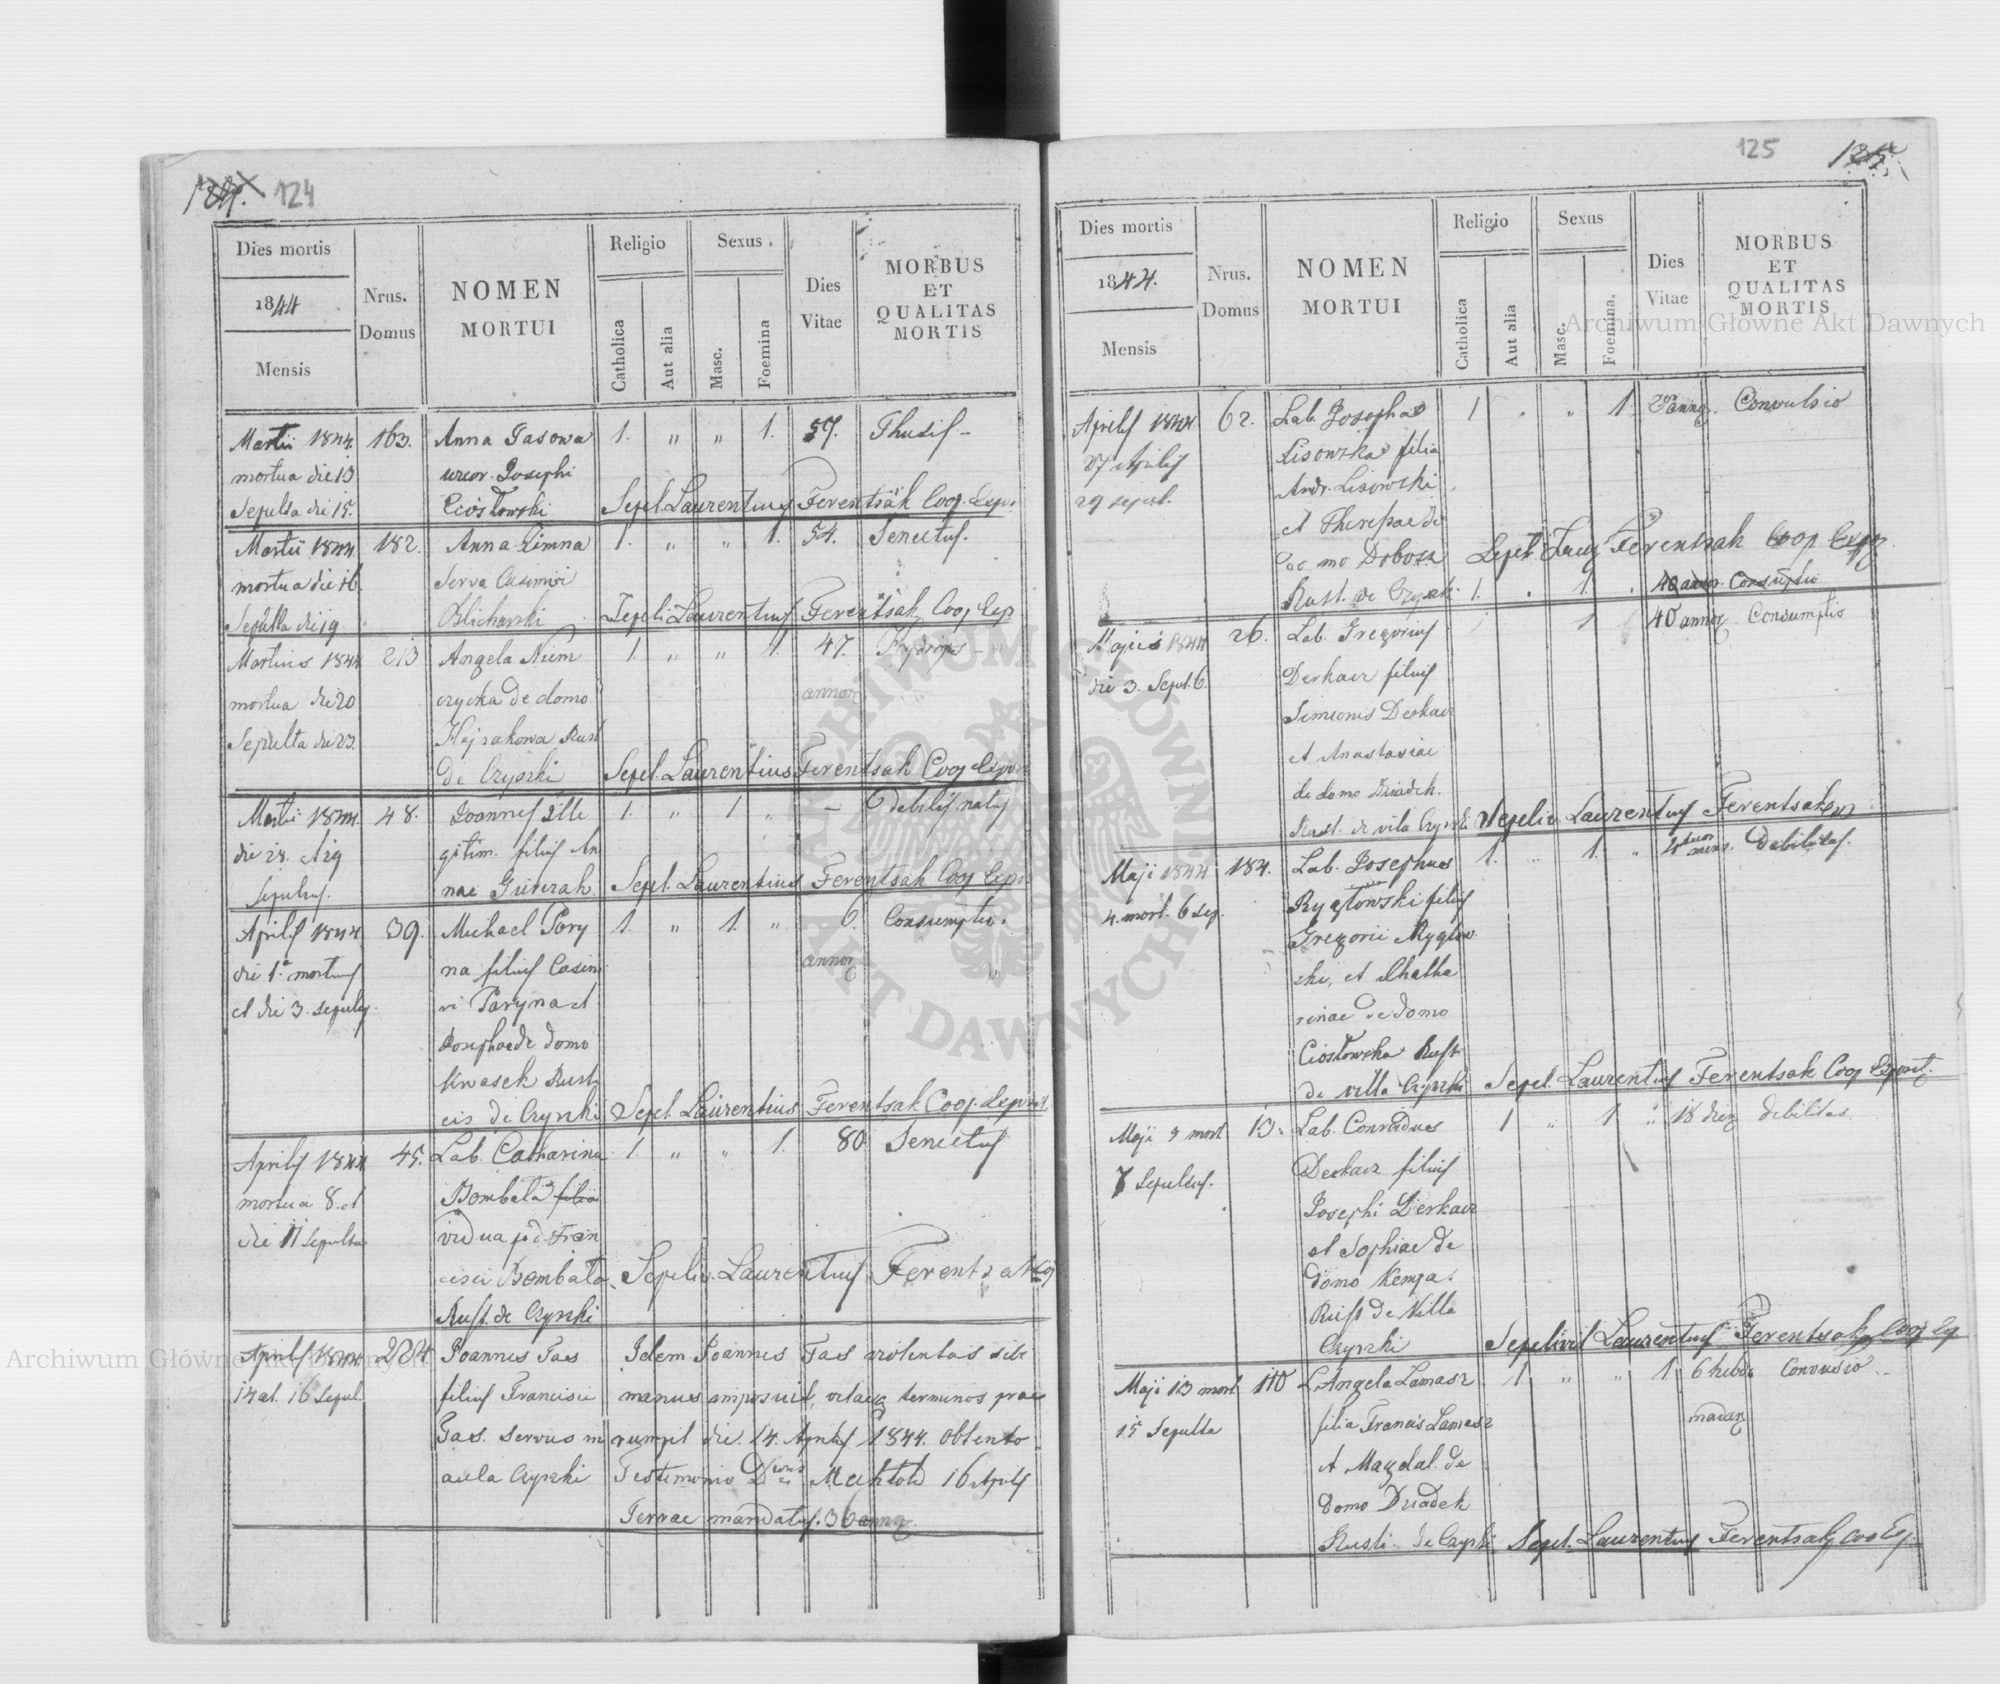 124. 124
Dies mortis
1844
Mensis
Nrus.
Domus
NOMEN
MORTUI
Religio
Catholica
Aut alia
Sexus
Masc.
Foemina
Dies
Vitae
MORBUS
ET
QUALITAS
MORTIS
Martii 1844. 163. Anna Gasowa 1. " " 1. 57.
mortua die 13 uxor Josephi
Sepulta die 15. Ciosłowski Sepel. Laurentius Ferentsak Coop. Expo.
Martii 1844. 182. Anna Zimna 1. " " 1. 54. Senectus.
mortua die 16. Serva Casimiri
Sepulta die 19 Blicharski Sepeli. Laurentius Ferentsak Coop Exp
Martius 1844 213 Angela Niem 1. " " 1. 47. Hydrops
mortua die 20 czycka de domo annor
Sepulta die 23. Rust
De Czyszki Sepel. Laurentius Ferentsak Coop Expon
Martii 1844. 48. Joannes Ille 1. " 1 " – debilis natus
die 28. et 29 gitim. filius An
Sepultus. nae Sepel. Laurentius Ferentsak Coop Expo
Aprilis 1844 39. Michael Pary 1. " 1. " 6. Consumptio.
die 1. mortuus na filius Casim annor
et die 3. sepultus ri Paryna et
Josephae de domo
Kwasek Rusti
cis de Czyszki Sepel. Laurentius Ferentsak Coop. Expos
Aprilis 1844 45. Lab. Catharina 1. " " 1. 80 Senectus
mortua 8. et Bombala filia
die 11 Sepulta vidua p. d. Fran
cisci Bombala Sepeliv. Laurentius Ferentsak
Rust. de Czyszki
Aprilis 1844 224. Joannes Gas Idem Joannes Gas violentas sibi
14 et 16 Sepul. filius Francisci manus imposuit, vitaeq terminos prae
Gas. Servus in rumpit die 14. Aprilis 1844. obtento
aula Czyszki Testimonio 16 Aprilis
Terrae mandatus. 36 annor
125 125
Dies mortis
1844.
Mensis
Nrus.
Domus
NOMEN
MORTUI
Religio
Catholica
Aut alia
Sexus
Masc.
Foemina.
Dies
Vitae
MORBUS
ET
QUALITAS
MORTIS
Aprilis 1844 62. Lab. Josepha 1 " " 1. annor. Convulsio
27 Aprilis Lisowska filia
29 sepul. Andr. Lisowski
et Theresiae de
domo Dobosz Sepel. Laur Ferentsak Coop Expo
Rust. de Czyszki 1. " 1. " 40 annor. Consumptio
Majus 1844 26. Lab. Gregorius 1 40 annor Consumptio
die 3. Sepul. 6. Derkacz filius
Simeonis Derkacz
et Anastasiae
de domo Dziadek.
Rust. de villa Czyszki Sepeliv. Laurentius Ferentsak
Maji 1844 184. Lab. Josephus 1. " 1. " mens. Debilitas.
4. mort. 6 sep. Ryglowski filius
Gregorii Ryglow
ski, et Chatha
rinae de domo
Ciosłowska Rust.
de villa Czyszki Sepel. Laurentius Ferentsak Coop Exposit.
Maji 5 mort 13. Lab. Conradus 1 " 1 " 18 dier debilitas.
7 Sepultus. Derkacz filius
Josephi Derkacz
et Sophiae de
domo Kempa.
Rust de Villa
Czyszki Sepelivit Laurentius Ferentsak Coop Ex
Maji 13 mort 110 L. Angela Lamasz 1. " " 1 6 hebdo Convusio
15 Sepulta filia Francis Lamasz madar
et Magdal. de
domo Dziadek
Rusti. de Czyszki Sepel. Laurentius Ferentsak Coo Ex.
Archiwum Główne Akt Dawnych
Archiwum Główne Akt Dawnych
ARCHIWUM GŁÓWNE AKT DAWNYCH